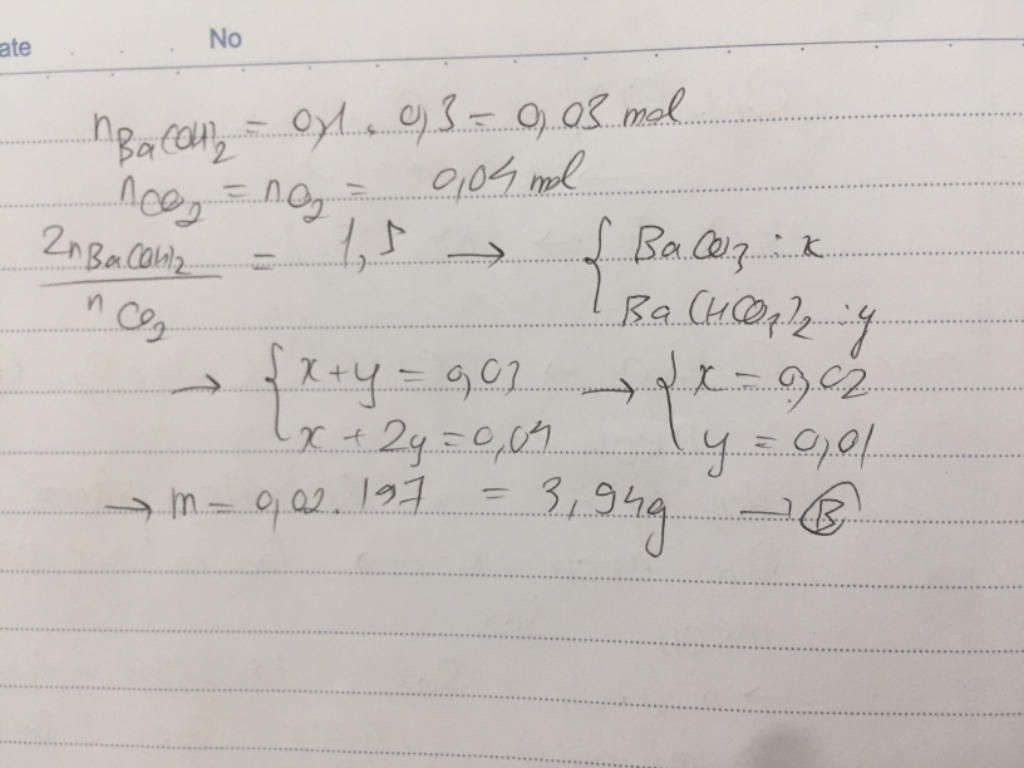 ate No
nBa(OH)2 = 0,1 . 0,3 = 0,03 mol
nCO2 = nO2 = 0,04 mol
2nBa(OH)2 / nCO2 = 1,5 → { BaCO3 : x
Ba(HCO3)2 : y
→ { x + y = 0,03 → { x = 0,02
x + 2y = 0,04 y = 0,01
→ m = 0,02 . 197 = 3,94g → B